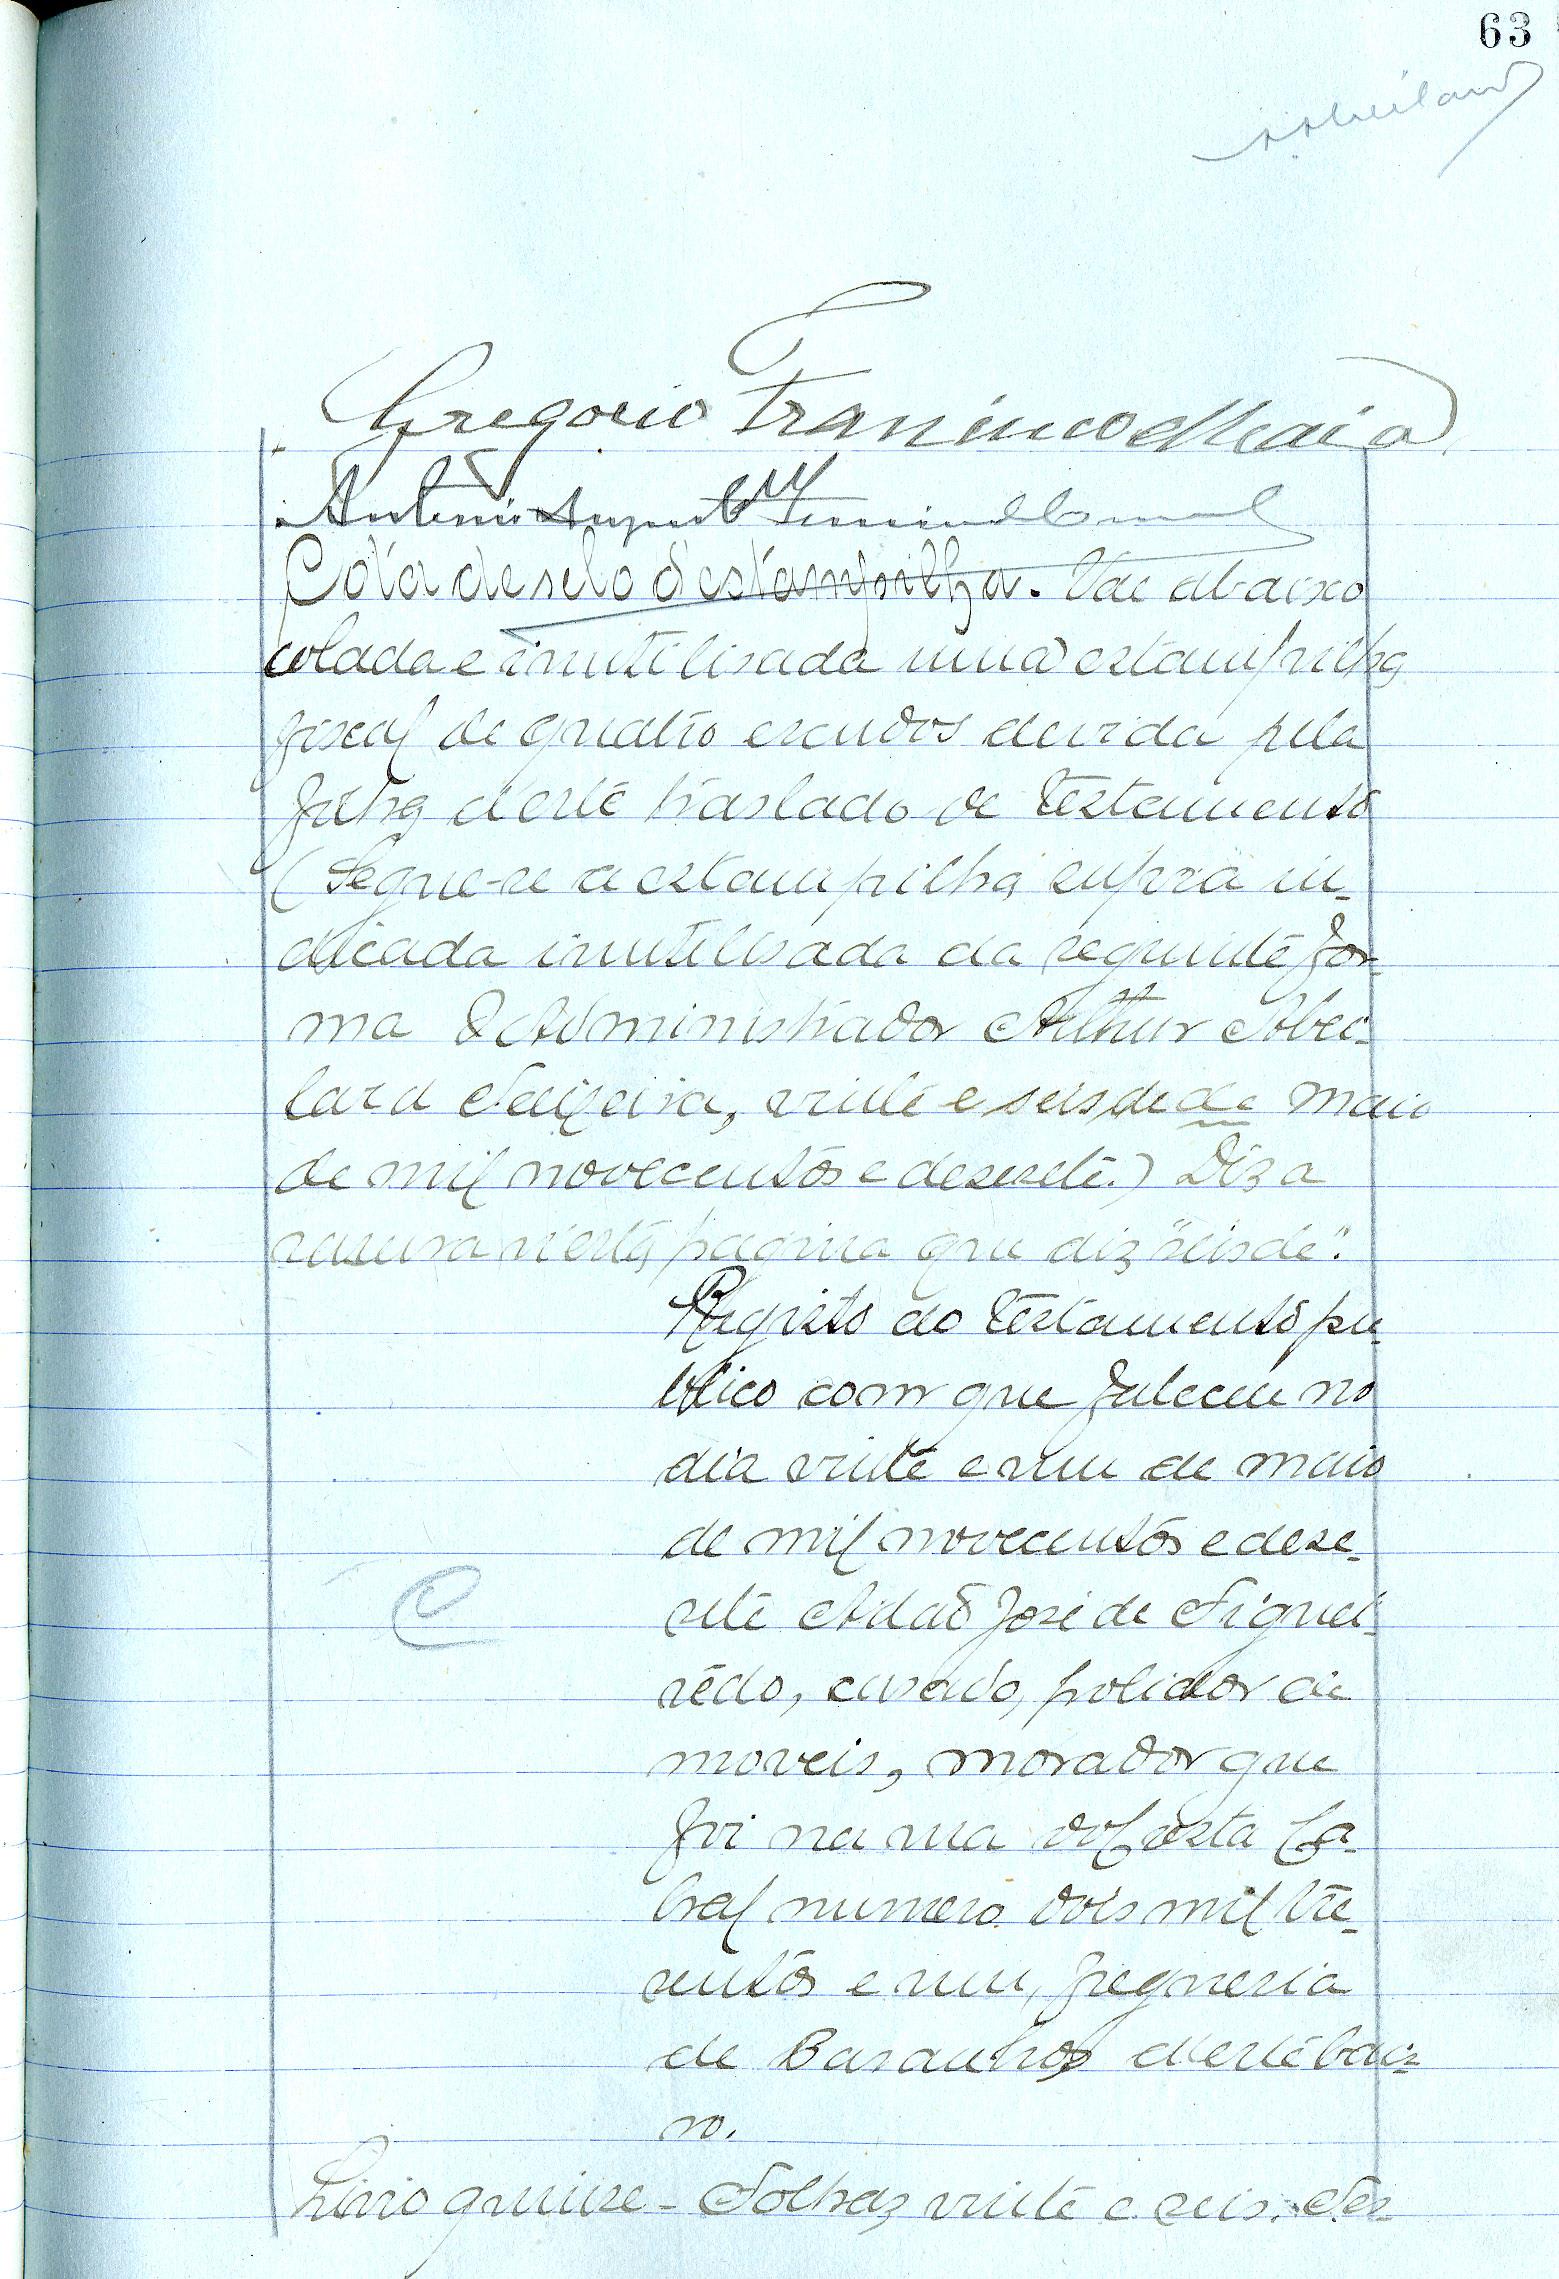 63
Gregorio Francisco Maia
Cota de selo d'estampilha. Vae abaixo
colada e inutilisada uma estampilha
fiscal de quatro escudos devida pela
folha d'este traslado de testamento
(Segue-se a estampilha supra in-
dicada inutilisada da seguinte for-
ma O Administrador Arthur Abei-
lard Teixeira, vinte e seis de de maio
de mil novecentos e desesete.) Diz a
rasura n'esta pagina que diz "seis de".
Registo do testamento pu-
blico com que faleceu no
dia vinte e um de maio
de mil novecentos e dese-
sete Adaõ José de Figuei-
rêdo, casado, polidor de
moveis, morador que
foi na rua do Costa Ca-
bral numero dois mil tre-
sentos e um, freguesia
de Paranhos d'este bair-
ro.
Livro quinse - Folhas vinte e seis. Tes-